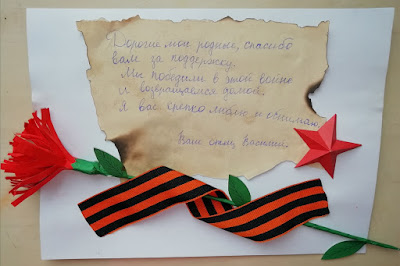 Дорогие мои родные, спасибо
вам за поддержку.
Мы победили в этой войне
и возвращаемся домой.
Я вас крепко люблю и обнимаю.
Ваш отец